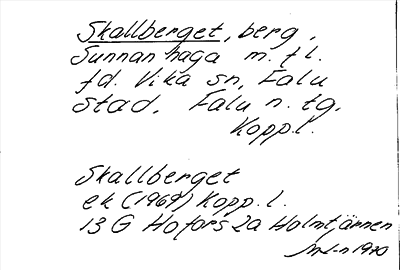 Skallberget, berg,
Sunnanhaga m. fl.
fd. Vika sn, Falu
stad. Falu n. tg.
Kopp.l.
Skallberget
ek (1969) Kopp. l.
13 G Hofors 2a Holmtjännen
1970